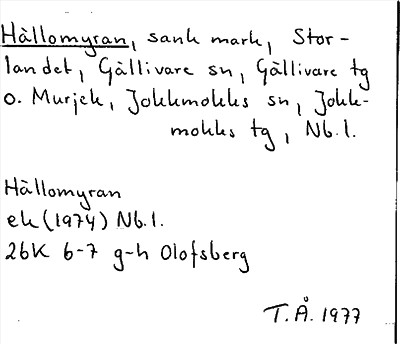 Hållomyran, sank mark, Stor-
landet, Gällivare sn, Gällivare tg
o. Murjek, Jokkmokks sn, Jokk-
mokks tg, Nb.l.
Hållomyran
ek (1974) Nb.l.
26K 6-7 g-h Olofsberg
T.Å. 1977